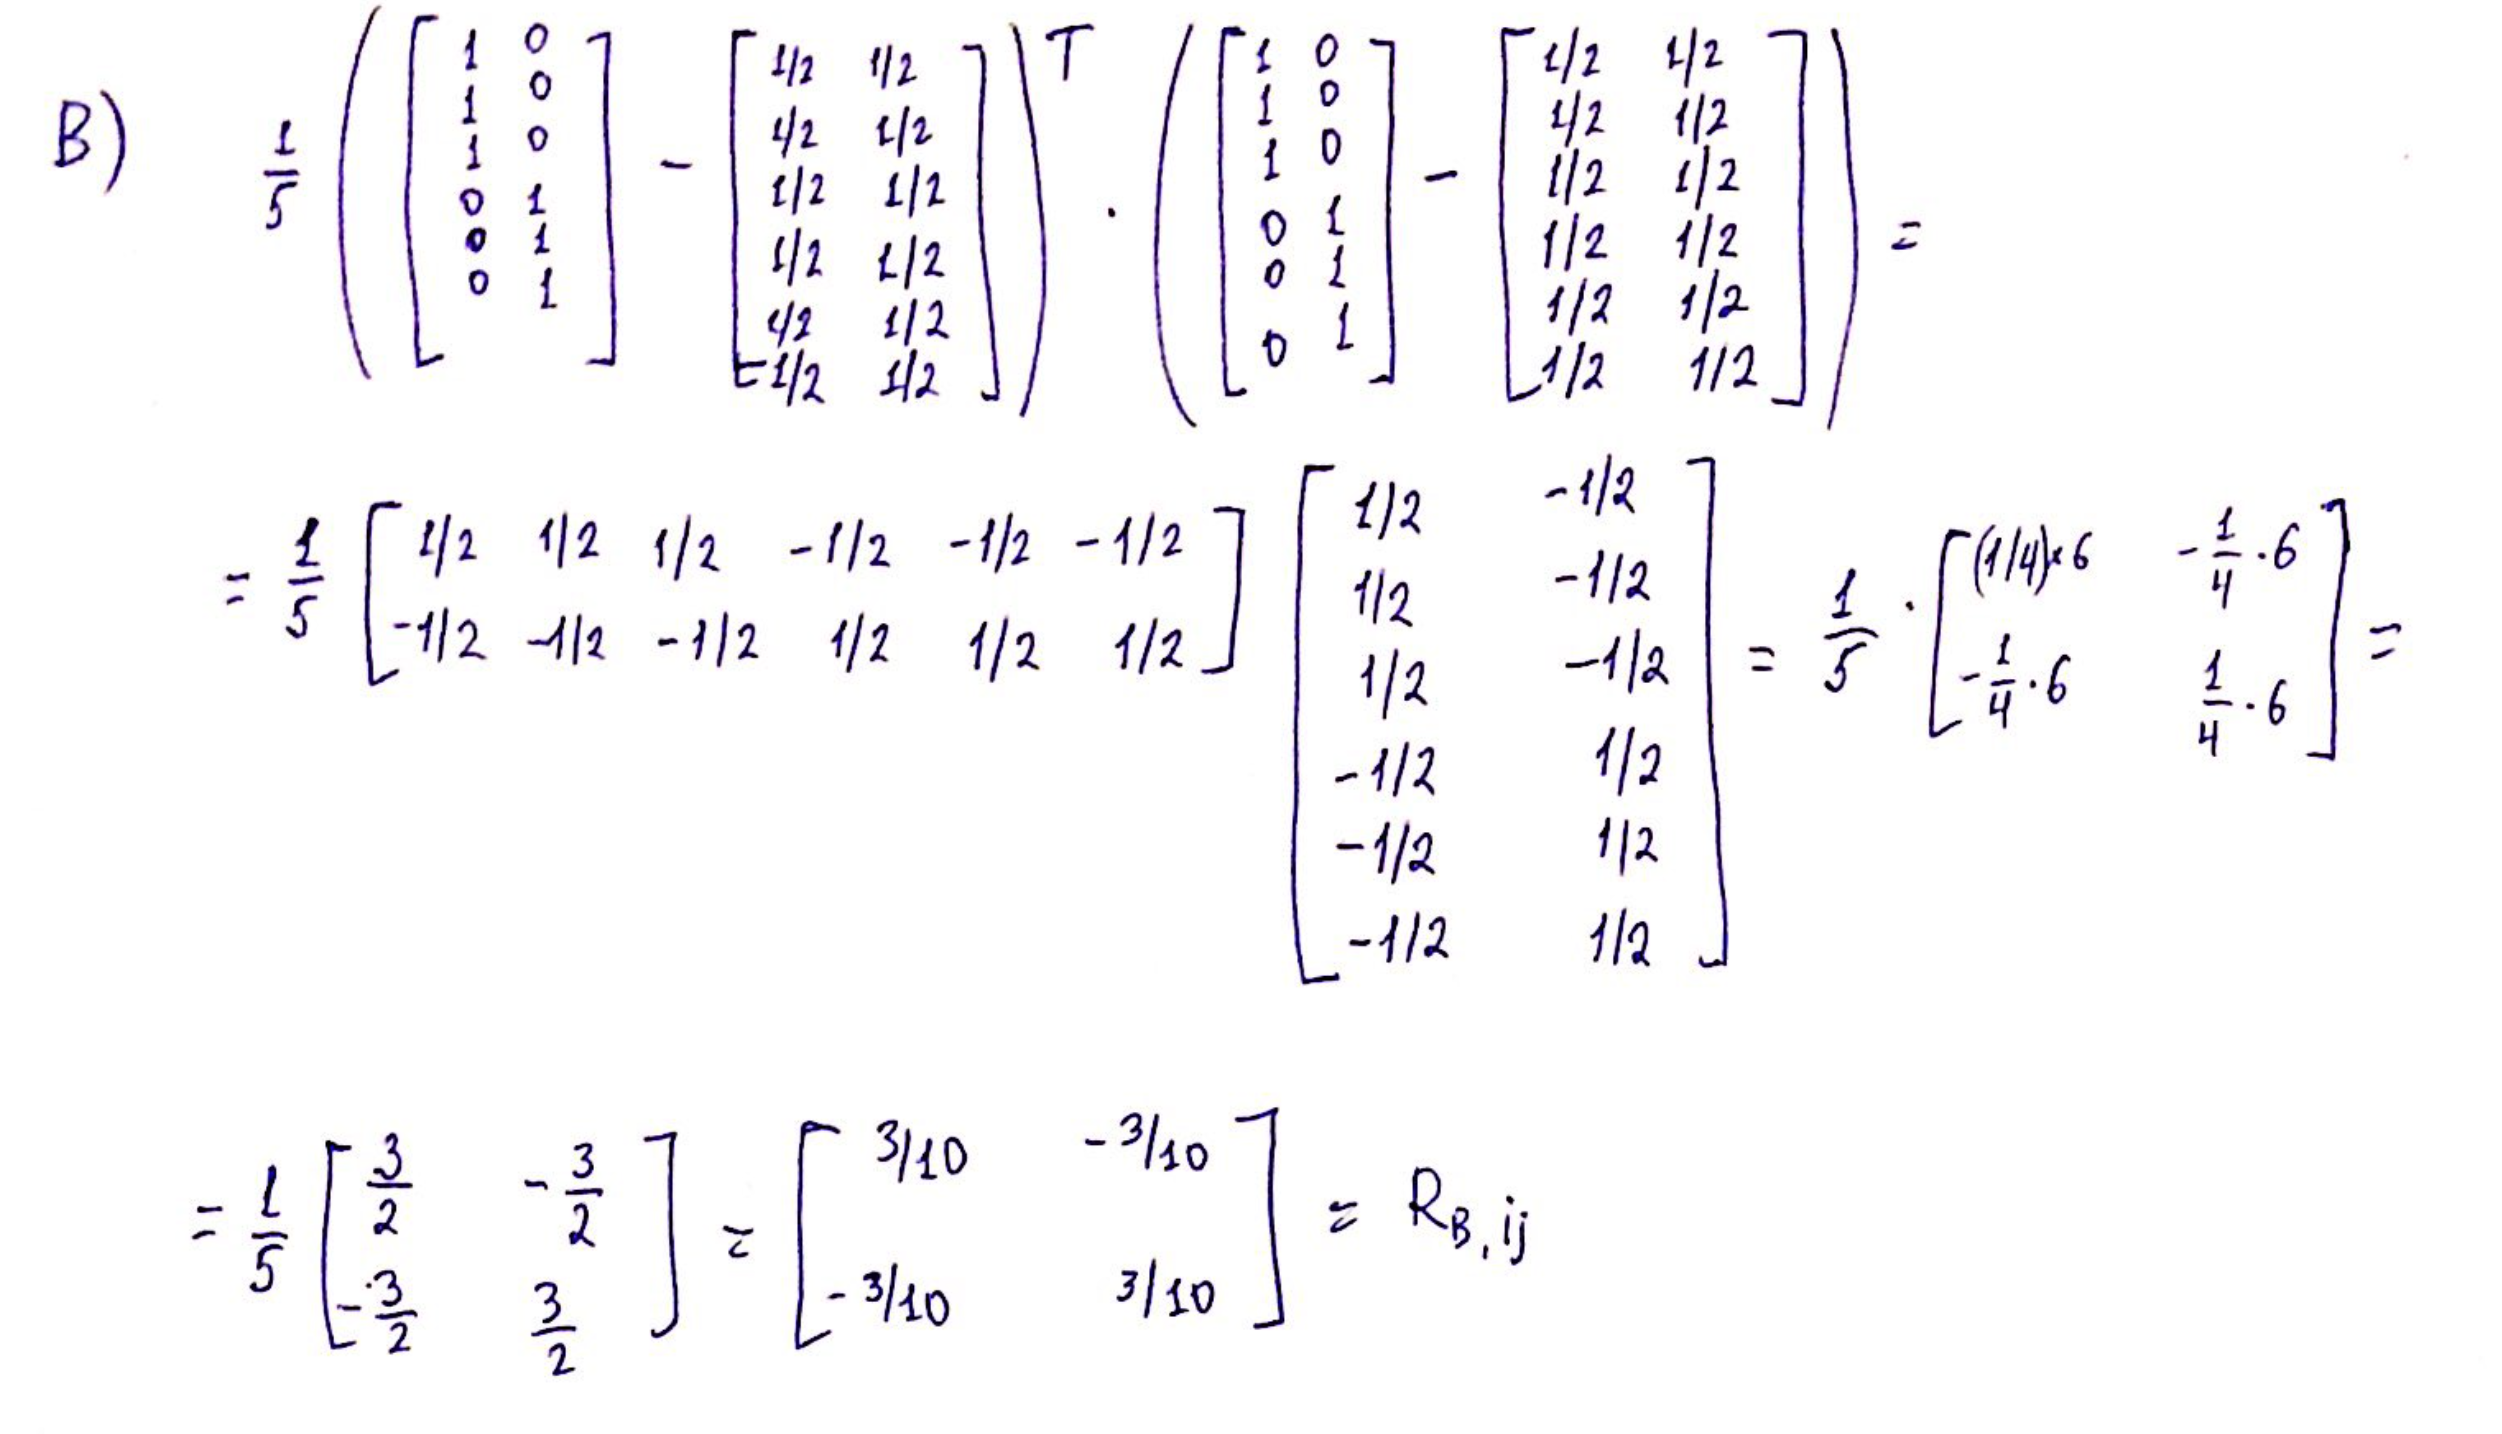 B) \frac{1}{5} \left( \begin{bmatrix} 1 & 0 \\ 1 & 0 \\ 1 & 0 \\ 0 & 1 \\ 0 & 1 \\ 0 & 1 \end{bmatrix} - \begin{bmatrix} 1/2 & 1/2 \\ 1/2 & 1/2 \\ 1/2 & 1/2 \\ 1/2 & 1/2 \\ 1/2 & 1/2 \\ 1/2 & 1/2 \end{bmatrix} \right)^T \cdot \left( \begin{bmatrix} 1 & 0 \\ 1 & 0 \\ 1 & 0 \\ 0 & 1 \\ 0 & 1 \\ 0 & 1 \end{bmatrix} - \begin{bmatrix} 1/2 & 1/2 \\ 1/2 & 1/2 \\ 1/2 & 1/2 \\ 1/2 & 1/2 \\ 1/2 & 1/2 \\ 1/2 & 1/2 \end{bmatrix} \right) =
= \frac{1}{5} \begin{bmatrix} 1/2 & 1/2 & 1/2 & -1/2 & -1/2 & -1/2 \\ -1/2 & -1/2 & -1/2 & 1/2 & 1/2 & 1/2 \end{bmatrix} \begin{bmatrix} 1/2 & -1/2 \\ 1/2 & -1/2 \\ 1/2 & -1/2 \\ -1/2 & 1/2 \\ -1/2 & 1/2 \\ -1/2 & 1/2 \end{bmatrix} = \frac{1}{5} \cdot \begin{bmatrix} (1/4) \times 6 & -\frac{1}{4} \cdot 6 \\ -\frac{1}{4} \cdot 6 & \frac{1}{4} \cdot 6 \end{bmatrix} =
= \frac{1}{5} \begin{bmatrix} \frac{3}{2} & -\frac{3}{2} \\ -\frac{3}{2} & \frac{3}{2} \end{bmatrix} = \begin{bmatrix} 3/10 & -3/10 \\ -3/10 & 3/10 \end{bmatrix} = R_{B,ij}